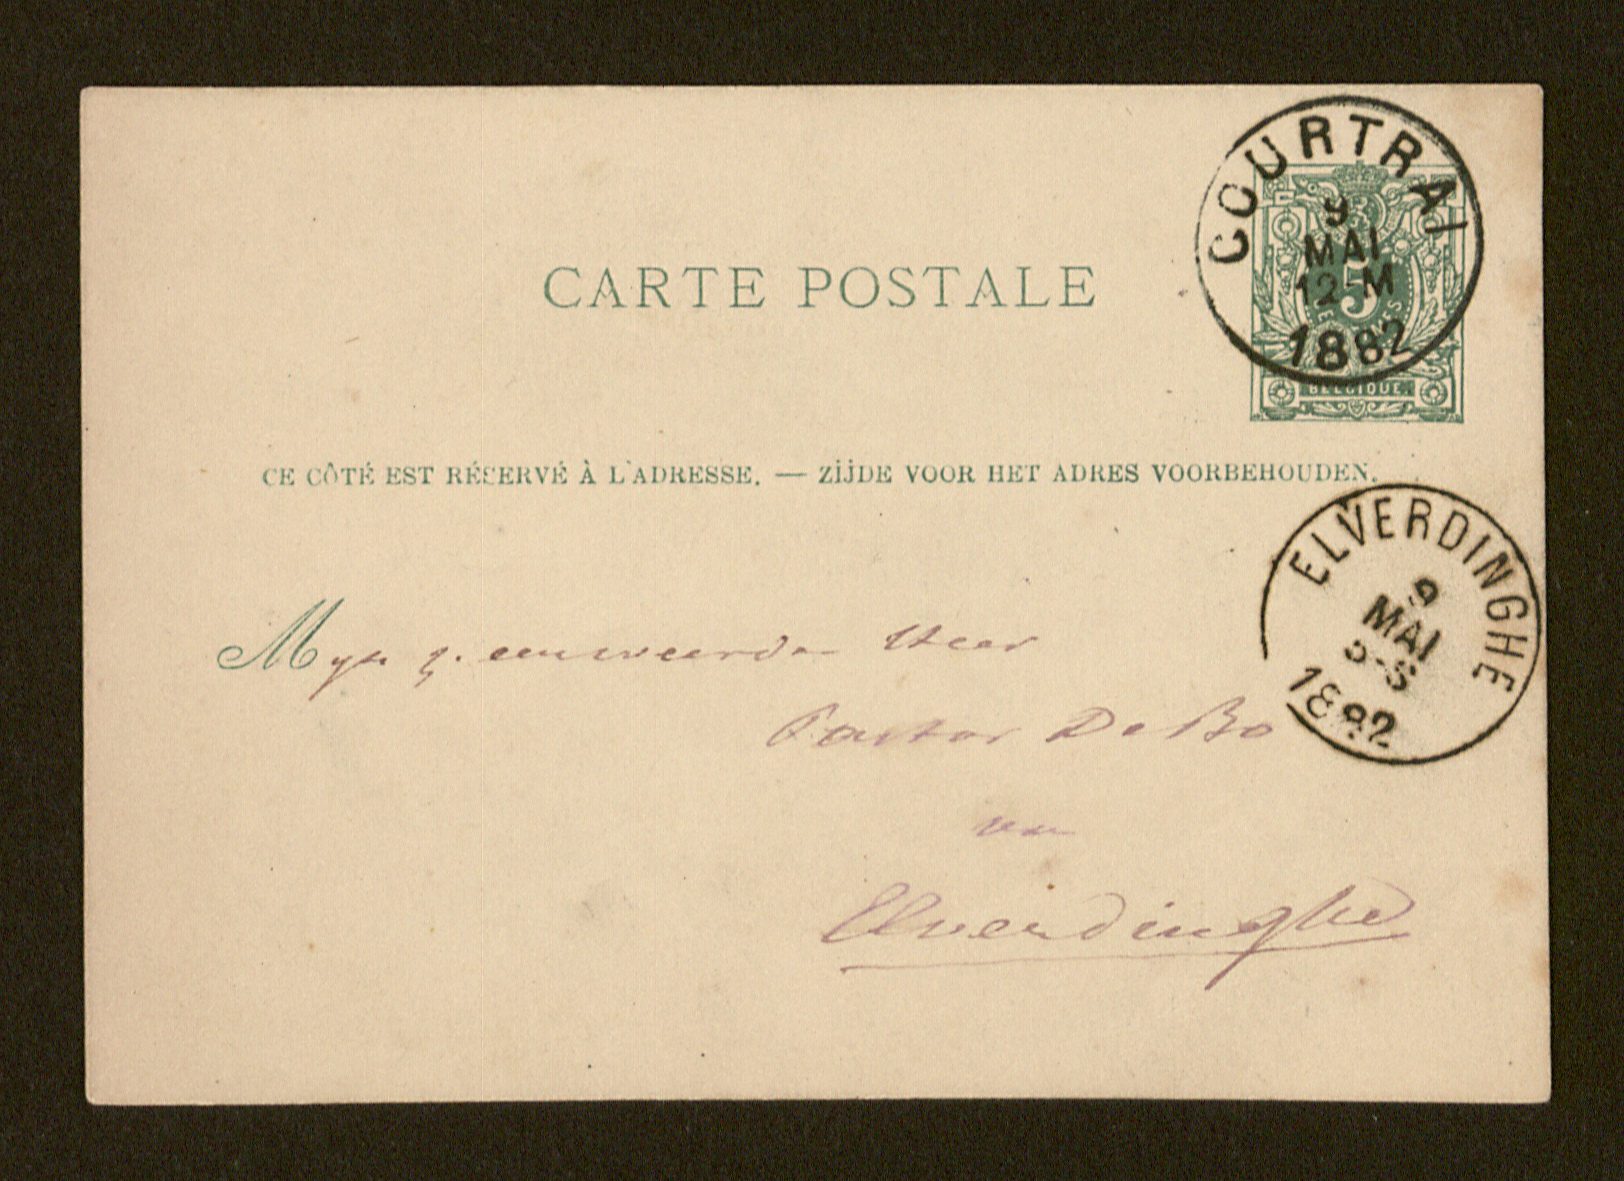 COURTRAI
9
MAI
12-M
1882
5
BELGIQUE
CARTE POSTALE
CE CÔTÉ EST RÉSERVÉ À L'ADRESSE. — ZIJDE VOOR HET ADRES VOORBEHOUDEN.
ELVERDINGHE
9
MAI
5-6
1882
Myn z. eerweerden Heer
Pastor De Bo
van
Elverdinghe